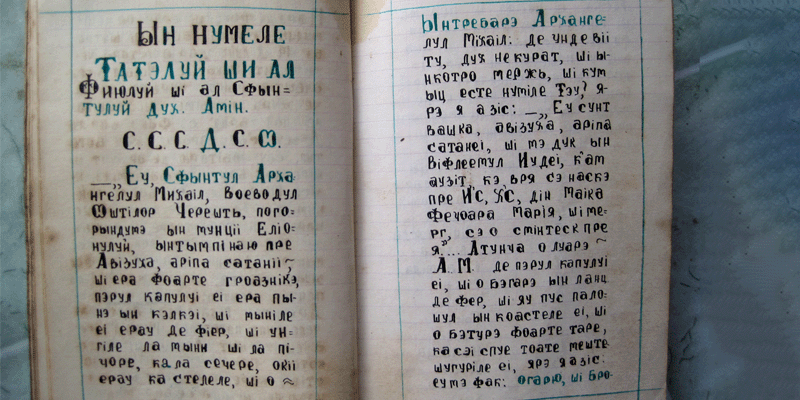 Ын нумеле
Татэлуй ши ал
Фиюлуй ші ал Сфын=
тулуй дух. Амін.
С. С. С. Д. С. Ѡ.
—„Еу, Сфынтул Арха=
нгелул Михаіл, воеводул
Ѡштілор Черешть, пого=
рындумэ ын мунціі Еліо=
нулуй, ынтымпінаю пре
Авізуха, аріпа сатаніі ~
ші ера фоарте гроазнікэ,
пэрул капулуі еі ера пы=
нэ ын кэлкэі, ші мыніле
еі ерау де фіер, ші ун=
гіле ла мыни ші ла пі=
чоре, ка ла сечере, окіі
ерау ка стелеле, ші о ~
Ынтребарэ Арханге=
лул Міхаіл: де унде віі
ту, дух некурат, ші ы=
нкотро мержь, ші кум
ыц есте нуміле Тэу? Я=
рэ я а зіс: —„ Еу сунт
вашка, авізуха, аріпа
сатанеі, ші мэ дук ын
Віфлеемул Иудеі, к'ам
аузіт, кэ вря сэ наскэ
пре И҃С, Х҃С, дін Маіка
Фечоара Марія, ші ме=
рг, сэ о смінтеск пре
я“... Атунча о луарэ ~
А. М. де пэрул капулуі
еі, ші о бэгарэ ын ланц
де фер, ші яу пус пало=
шул ын коастеле еі, ші
о бэтурэ фоарте таре,
ка сэ і спуе тоате меште=
шугуріле еі, ярэ я зіс:
еу мэ фак: огарю, ші бро=